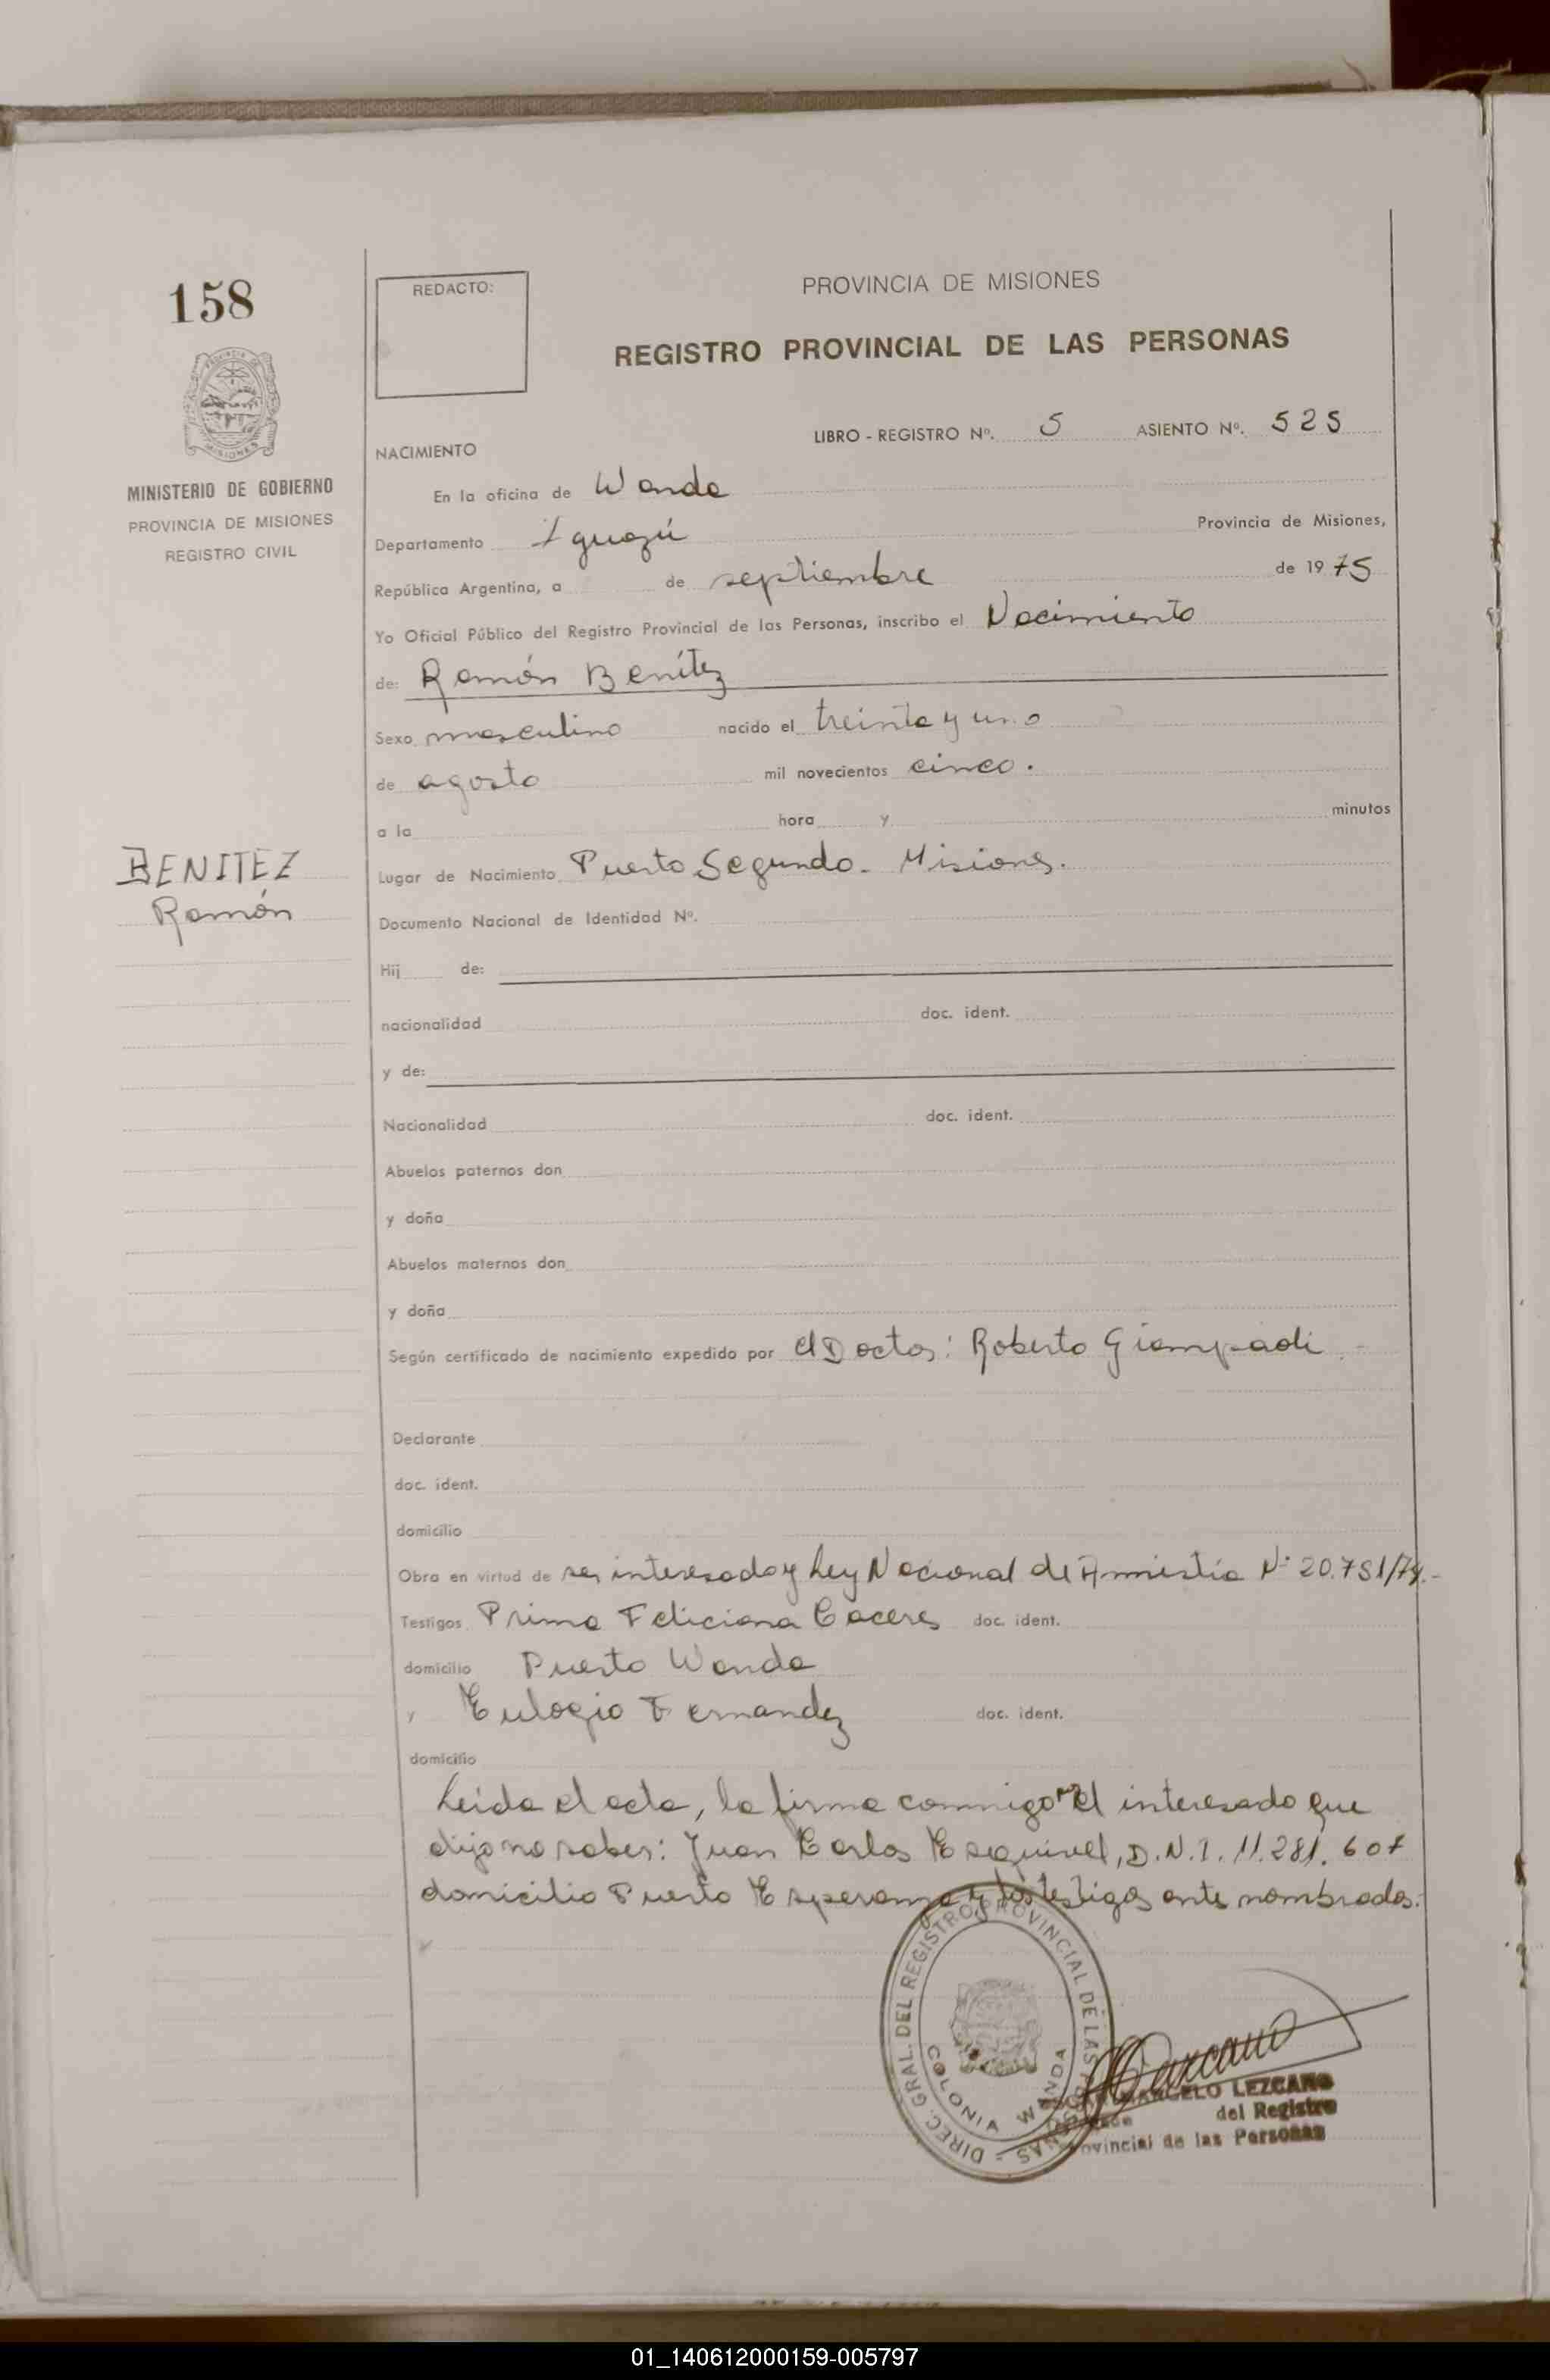 158
REDACTO:
PROVINCIA DE MISIONES
REGISTRO PROVINCIAL DE LAS PERSONAS
LIBRO - REGISTRO Nº. 5 ASIENTO Nº. 525
NACIMIENTO
MINISTERIO DE GOBIERNO
PROVINCIA DE MISIONES
REGISTRO CIVIL
En la oficina de Wanda
Departamento Iguazú Provincia de Misiones,
República Argentina, a de septiembre de 1975
Yo Oficial Público del Registro Provincial de las Personas, inscribo el Nacimiento
de: Ramón Benítez
Sexo masculino nacido el treinta y uno
de agosto mil novecientos cinco.
a la hora y minutos
BENITEZ
Ramón
Lugar de Nacimiento Puerto Segundo - Misiones.
Documento Nacional de Identidad Nº.
Hij de:
nacionalidad doc. ident.
y de:
Nacionalidad doc. ident.
Abuelos paternos don
y doña
Abuelos maternos don
y doña
Según certificado de nacimiento expedido por el Doctor: Roberto Giampaoli
Declarante
doc. ident.
domicilio
Obra en virtud de ser interesado y Ley Nacional de Amnistia Nº 20.751/74.-
Testigos Prima Feliciana Caceres doc. ident.
domicilio Puerto Wanda
y Eulogio Fernandez doc. ident.
domicilio
Leida el acta, la firma conmigo el interesado que
dijo no saber: Juan Carlos Esquivel, D.N.I. 11.281.607
domicilio Puerto Esperanza y los testigos ante nombrados.
DIREC. GRAL. DEL REGISTRO PROVINCIAL DE LAS PERSONAS
COLONIA WANDA
LEZCANO
del Registro
Provincial de las Personas
01_140612000159-005797